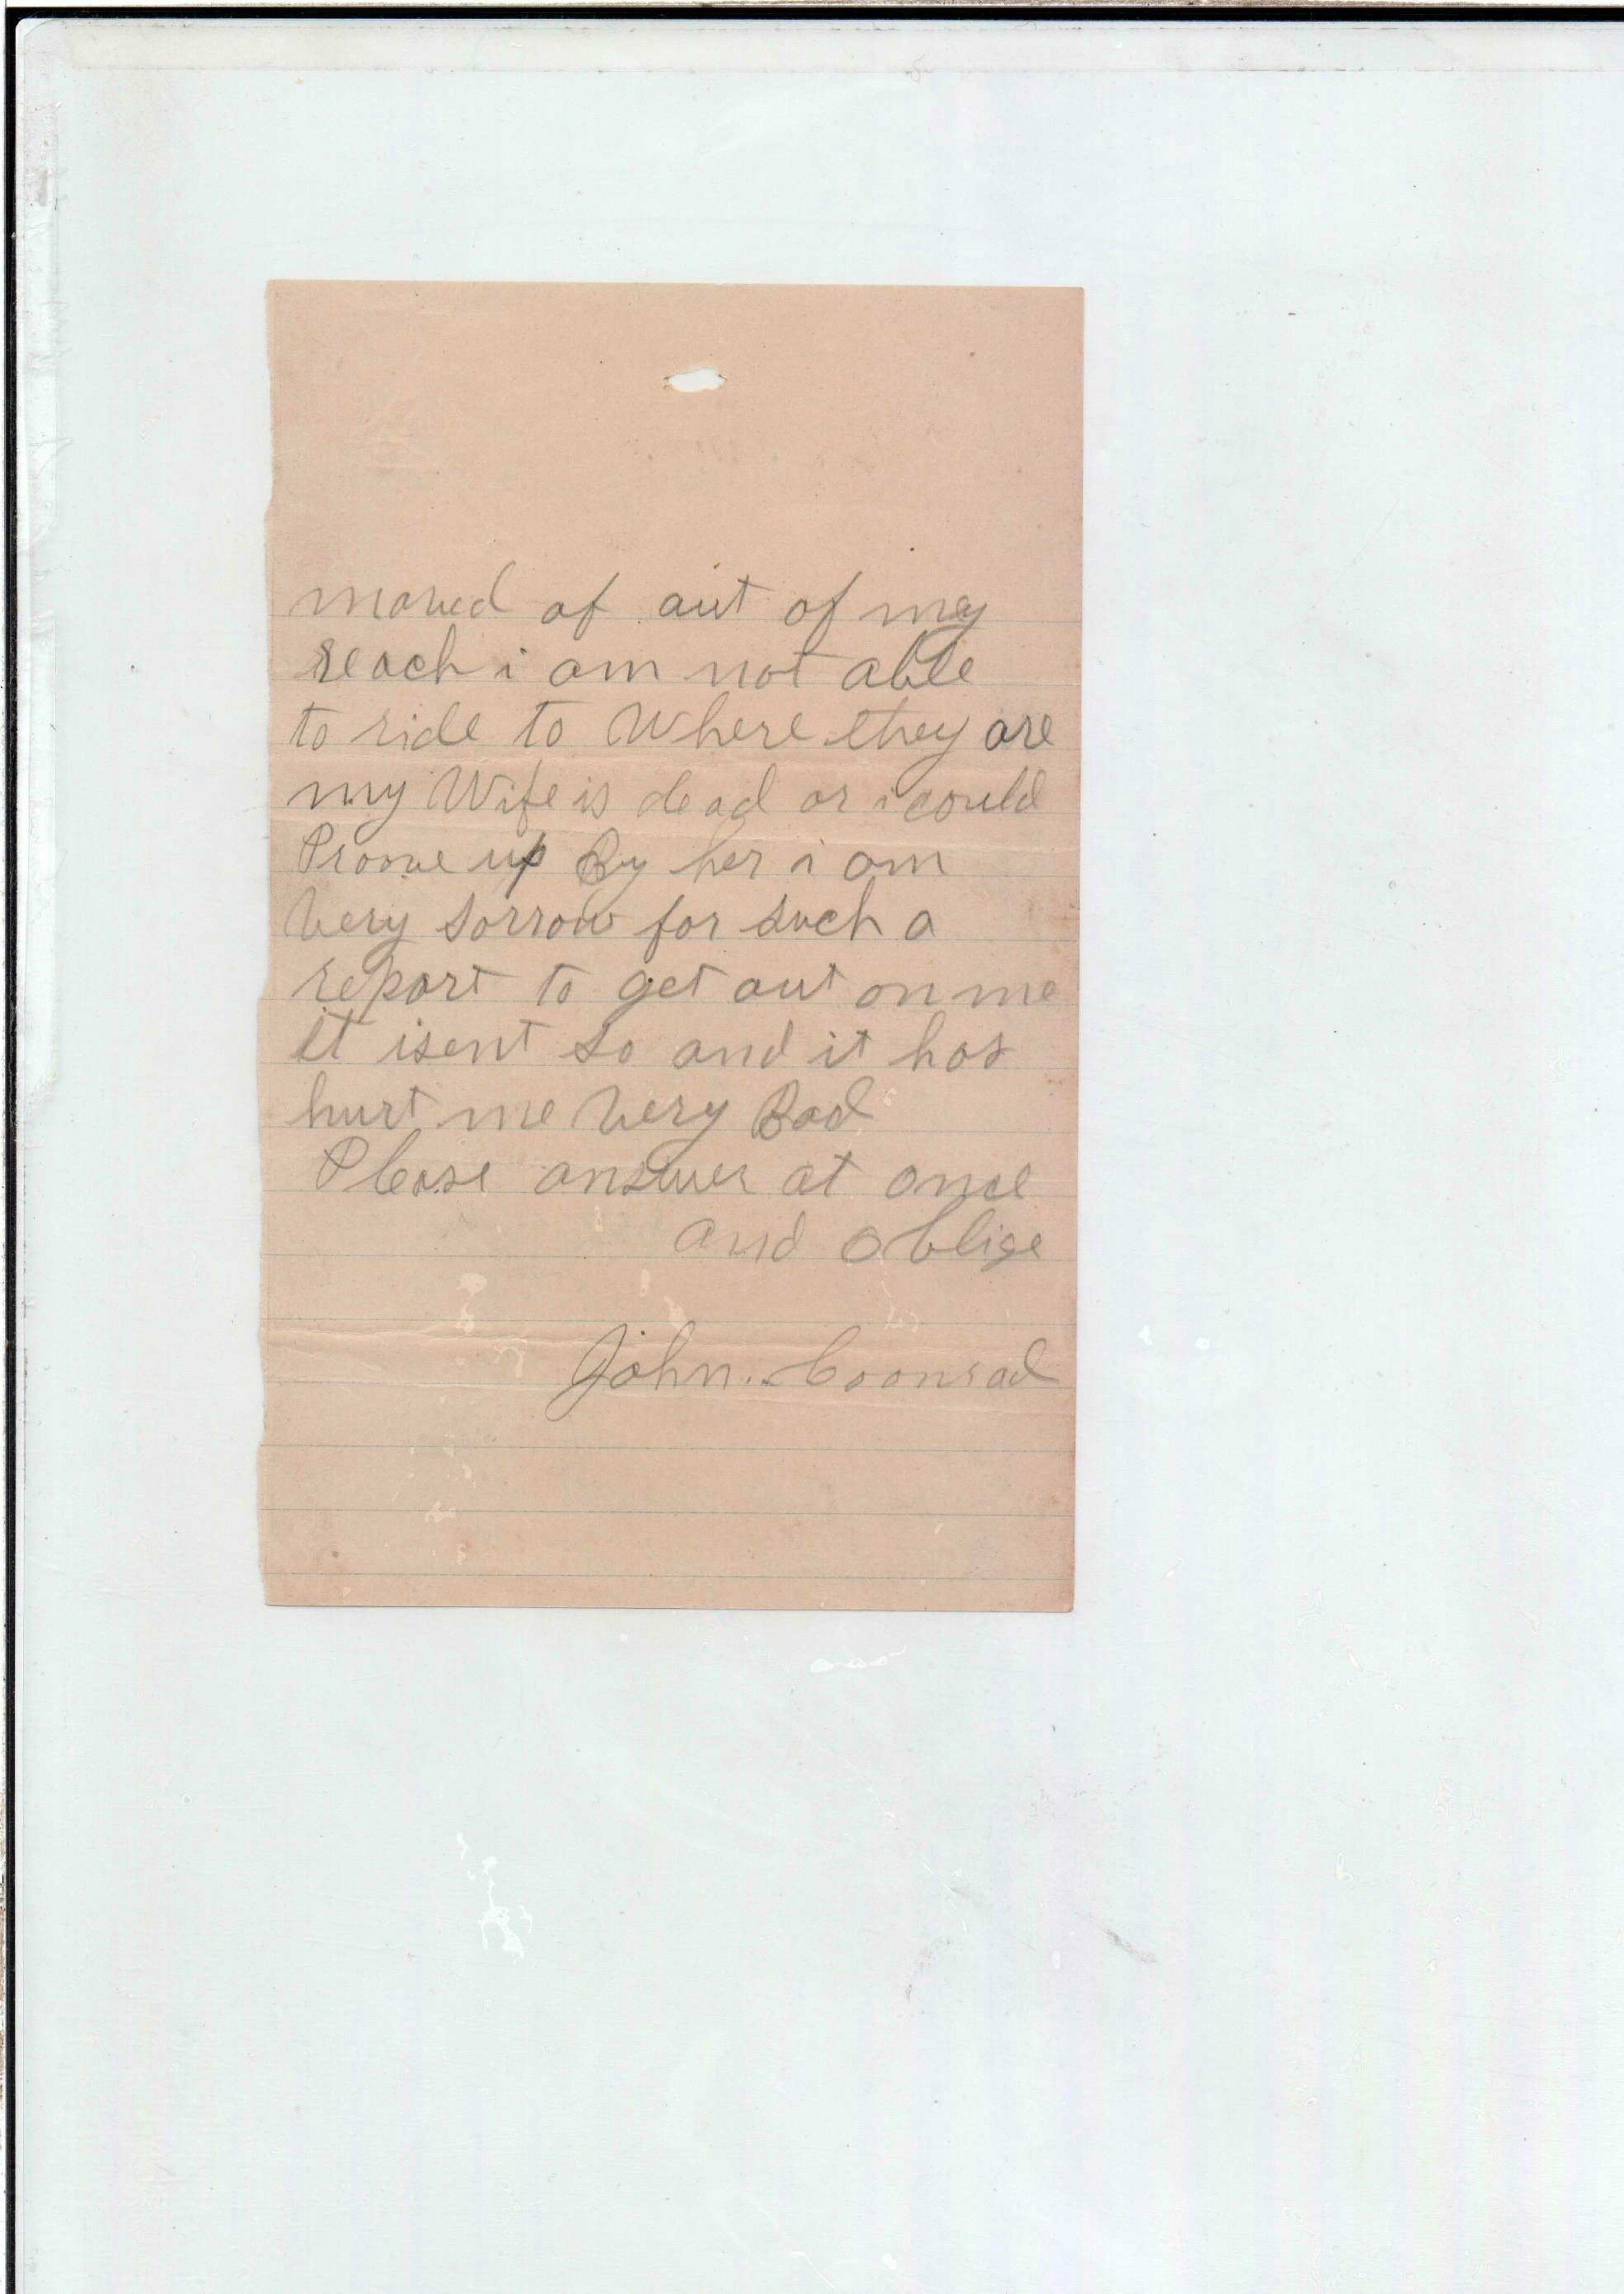 moved of out of my
reach i am not able
to ride to Where they are
my Wife is dead or i could
Proove up By her i am
very sorrow for such a
report to get out on me
it isent so and it has
hurt me very Bad
Please answer at once
and oblige
John. Coonrad